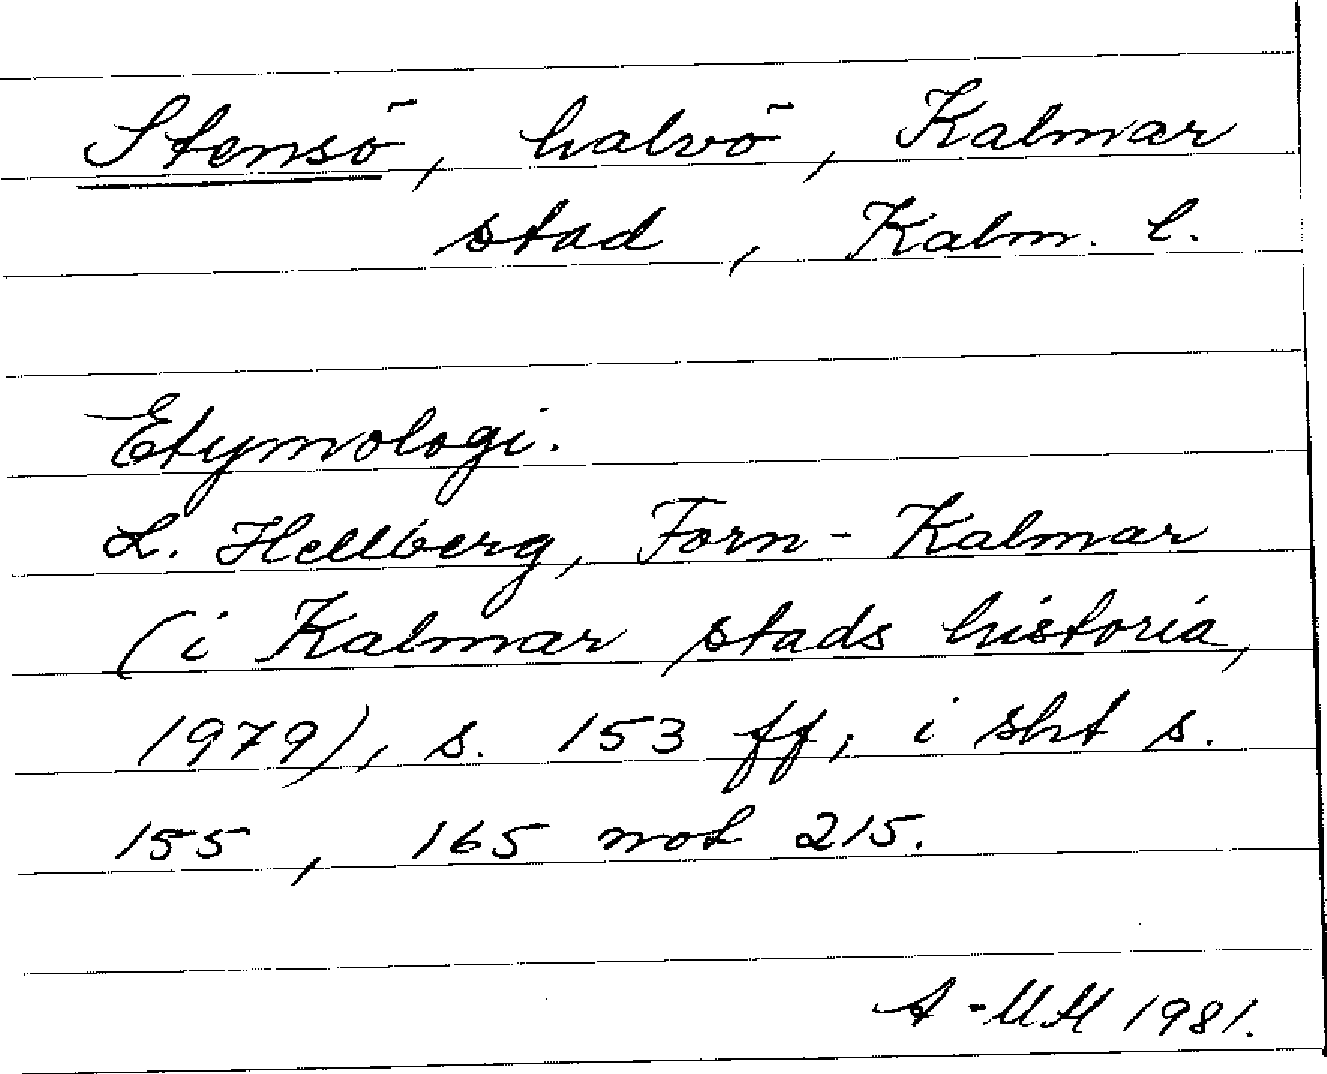 Stensö, halvö, Kalmar
stad, Kalm. l.
Etymologi.
L. Hellberg, Forn-Kalmar
(i Kalmar stads historia,
1979), s. 153 ff, i sht s.
155, 165 not 215.
A-MH 1981.